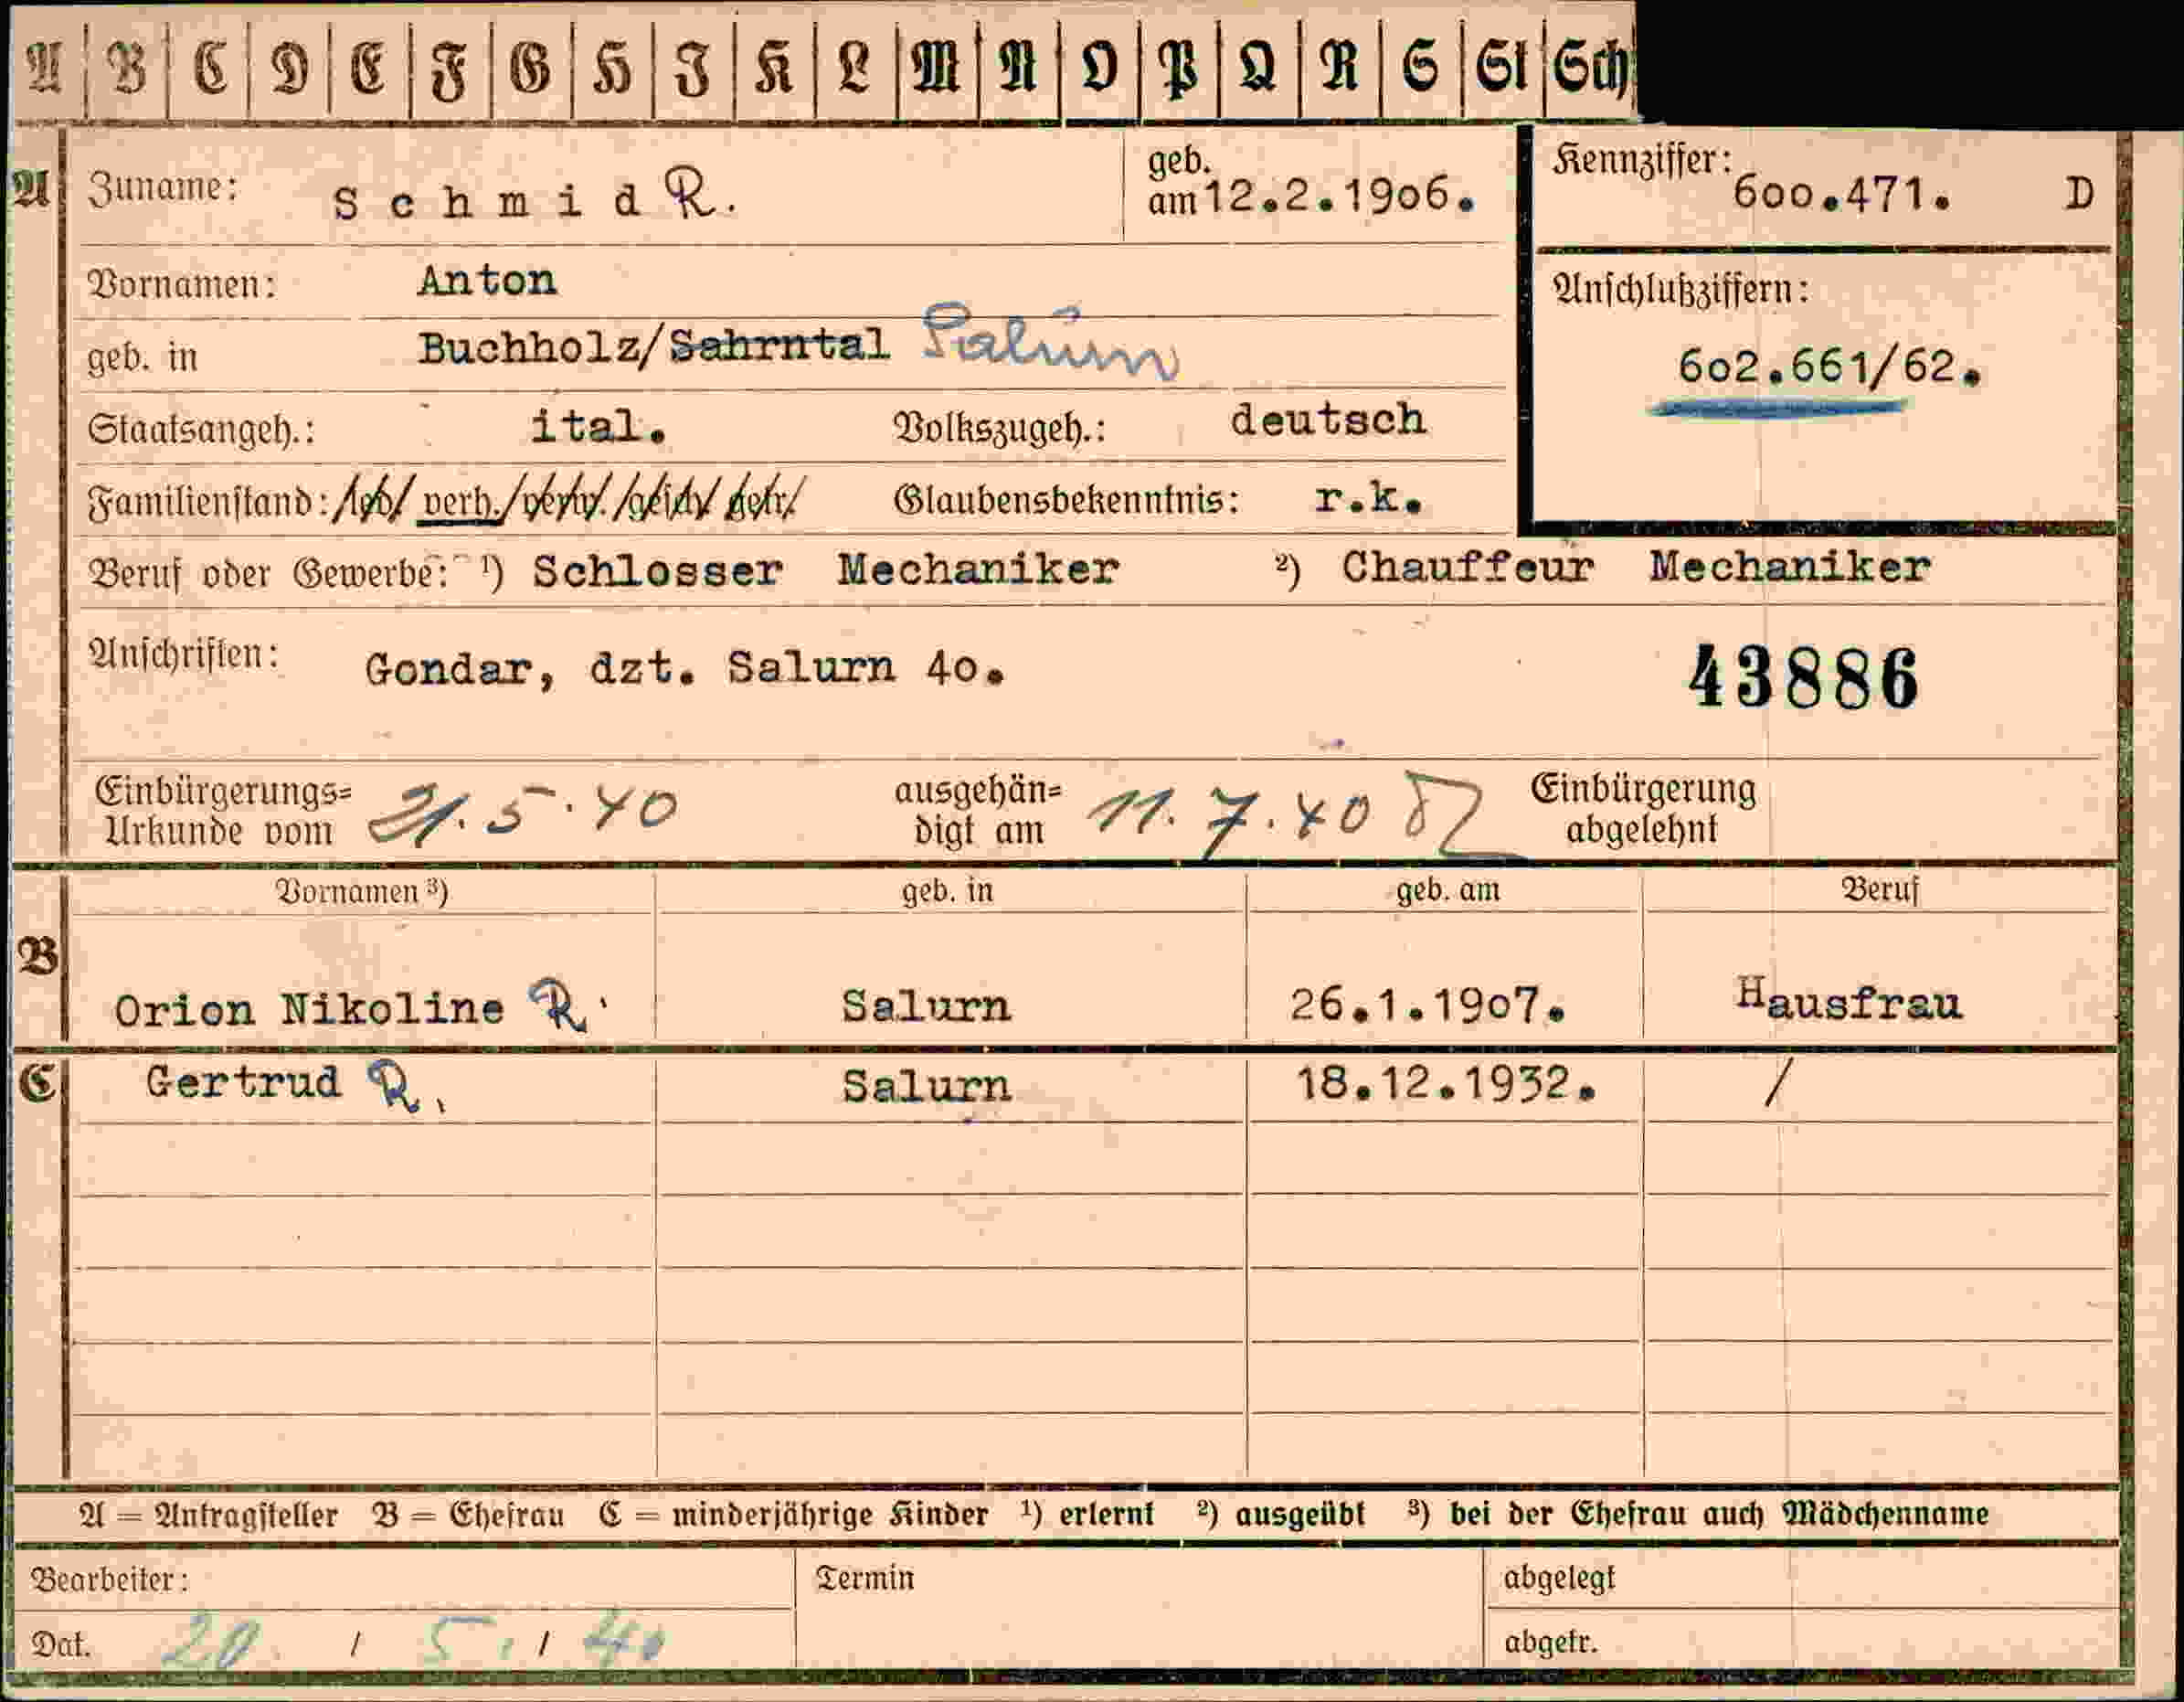 A B C D E F G H I K L M N O P Q R S St Sch
A Zuname: Schmid R. geb. am 12.2.1906. Kennziffer: 600.471. D
Vornamen: Anton Anschlußziffern:
geb. in Buchholz/Sahrntal Salurn 602.661/62.
Staatsangeh.: ital. Volkszugeh.: deutsch
Familienstand: /led/ verh./verw./gesch/ getr/ Glaubensbekenntnis: r.k.
Beruf oder Gewerbe: 1) Schlosser Mechaniker 2) Chauffeur Mechaniker
Anschriften: Gondar, dzt. Salurn 40. 43886
Einbürgerungs= ausgehän= Einbürgerung
Urkunde vom 21.5.40 digt am 11.7.40 abgelehnt
Vornamen 3) geb. in geb. am Beruf
B
Orion Nikoline R. Salurn 26.1.1907. Hausfrau
C Gertrud R. Salurn 18.12.1932. /
A = Antragsteller B = Ehefrau C = minderjährige Kinder 1) erlernt 2) ausgeübt 3) bei der Ehefrau auch Mädchenname
Bearbeiter: Termin abgelegt
Dat. 20 / 5. / 40 abgetr.